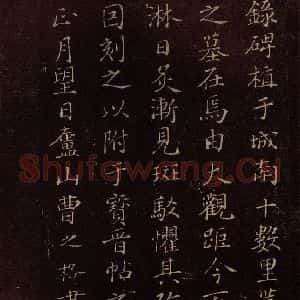 錄碑植于城南十數里
之墓在焉由大觀距今
淋日炙漸見斑駁懼其
因刻之以附于寶晉帖之
正月望日廬山曹之格書
Shufawang.Cn